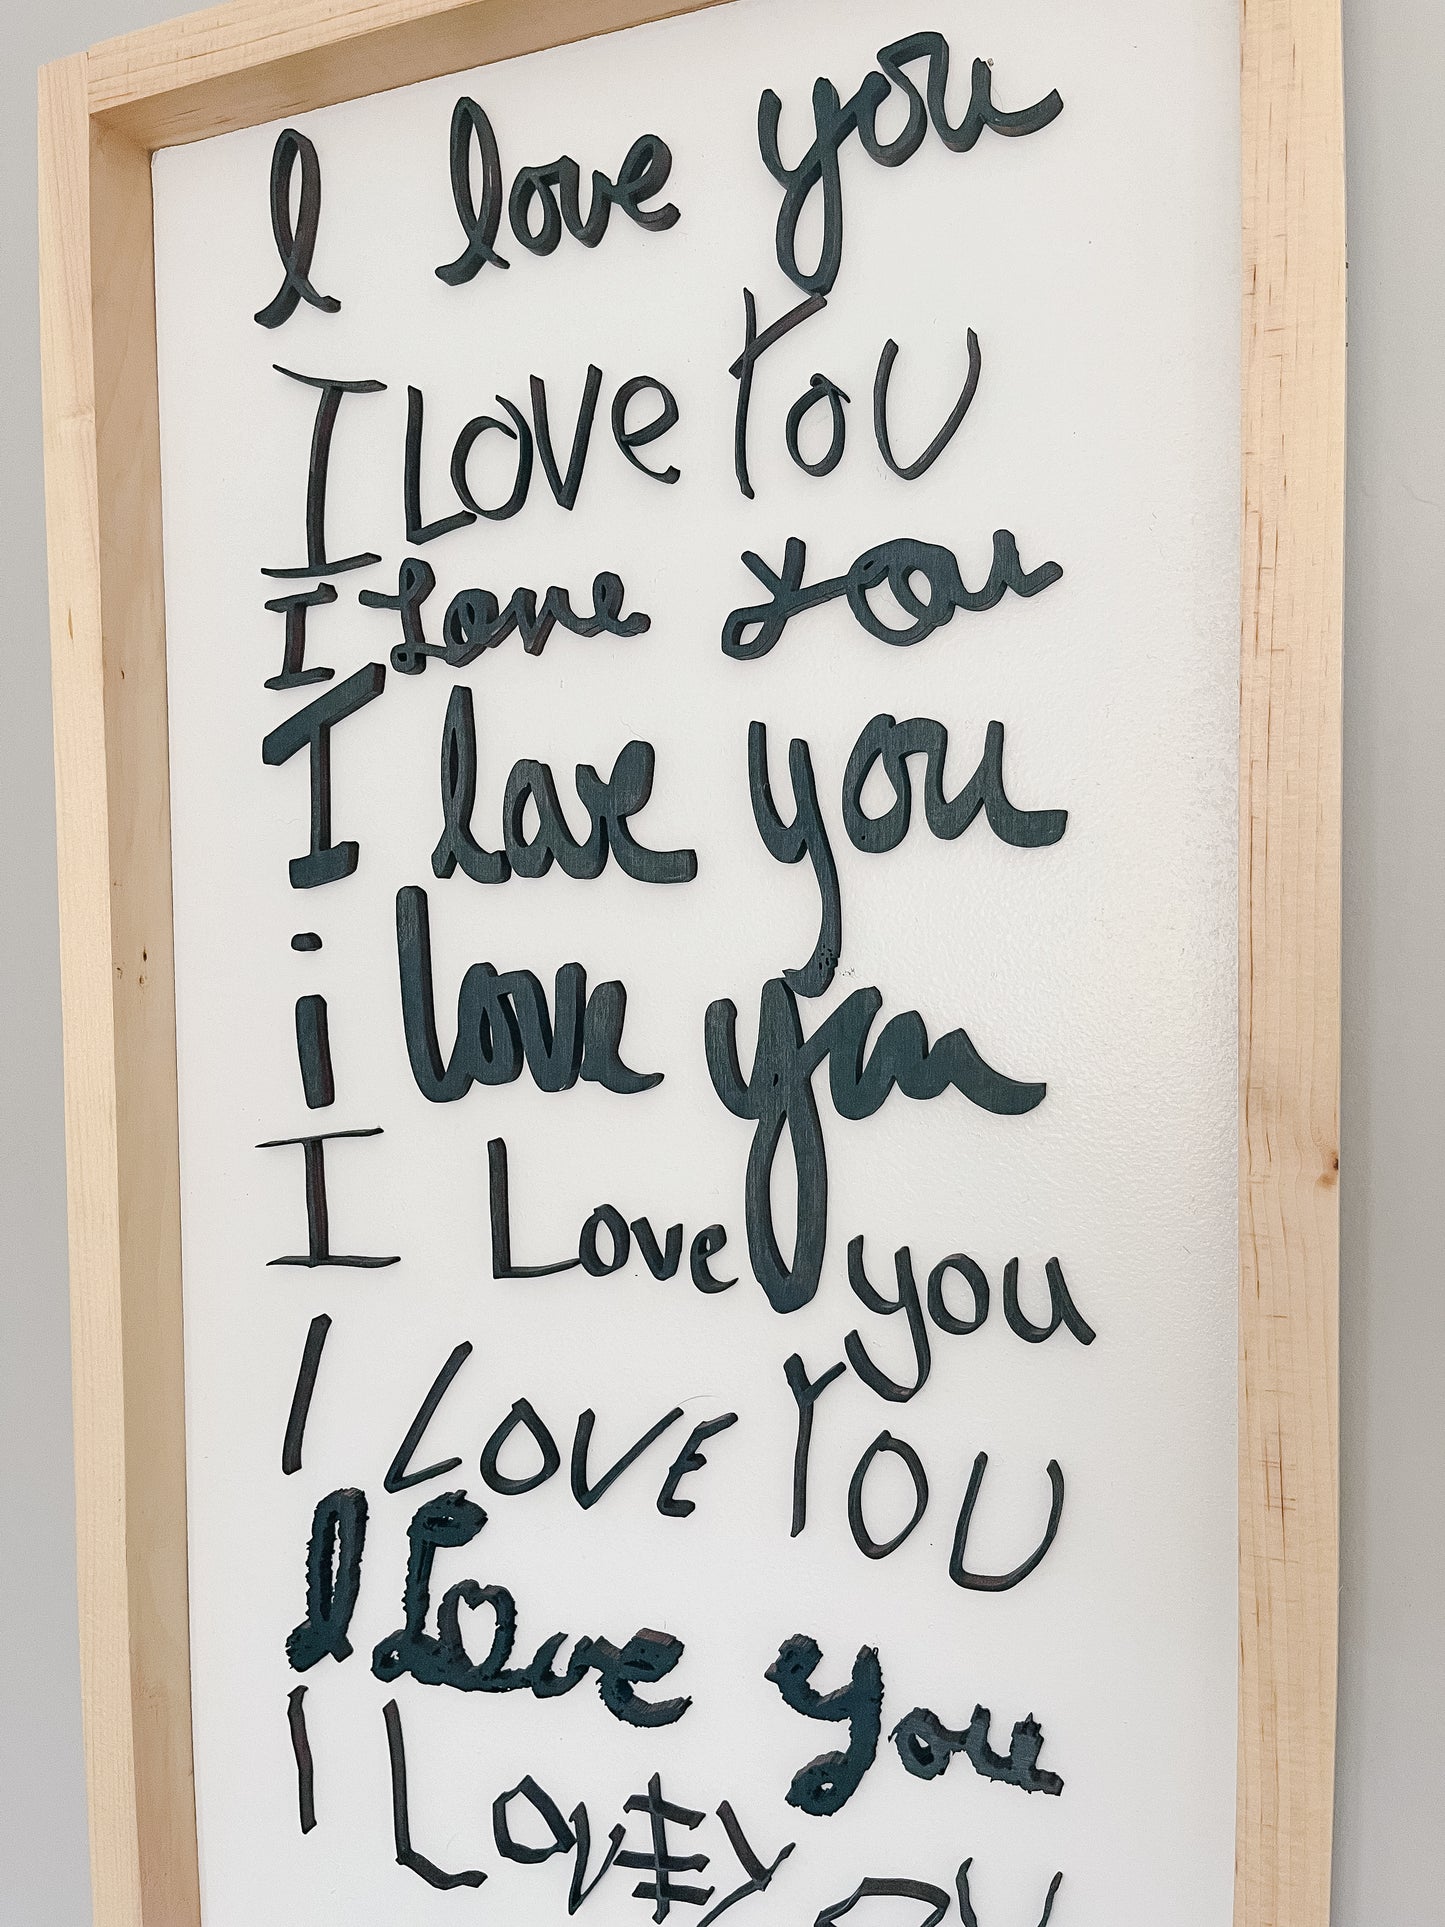 I love you
I LOVe YoU
I Love you
I love you
i love you
I Love you
I LOVE YOU
I Love you
I LOVE YOU